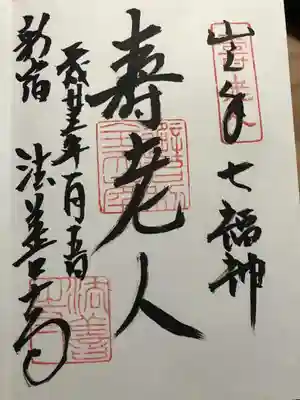 山之手七福神
寿老人
平成廿三年一月五日
新宿 法善寺